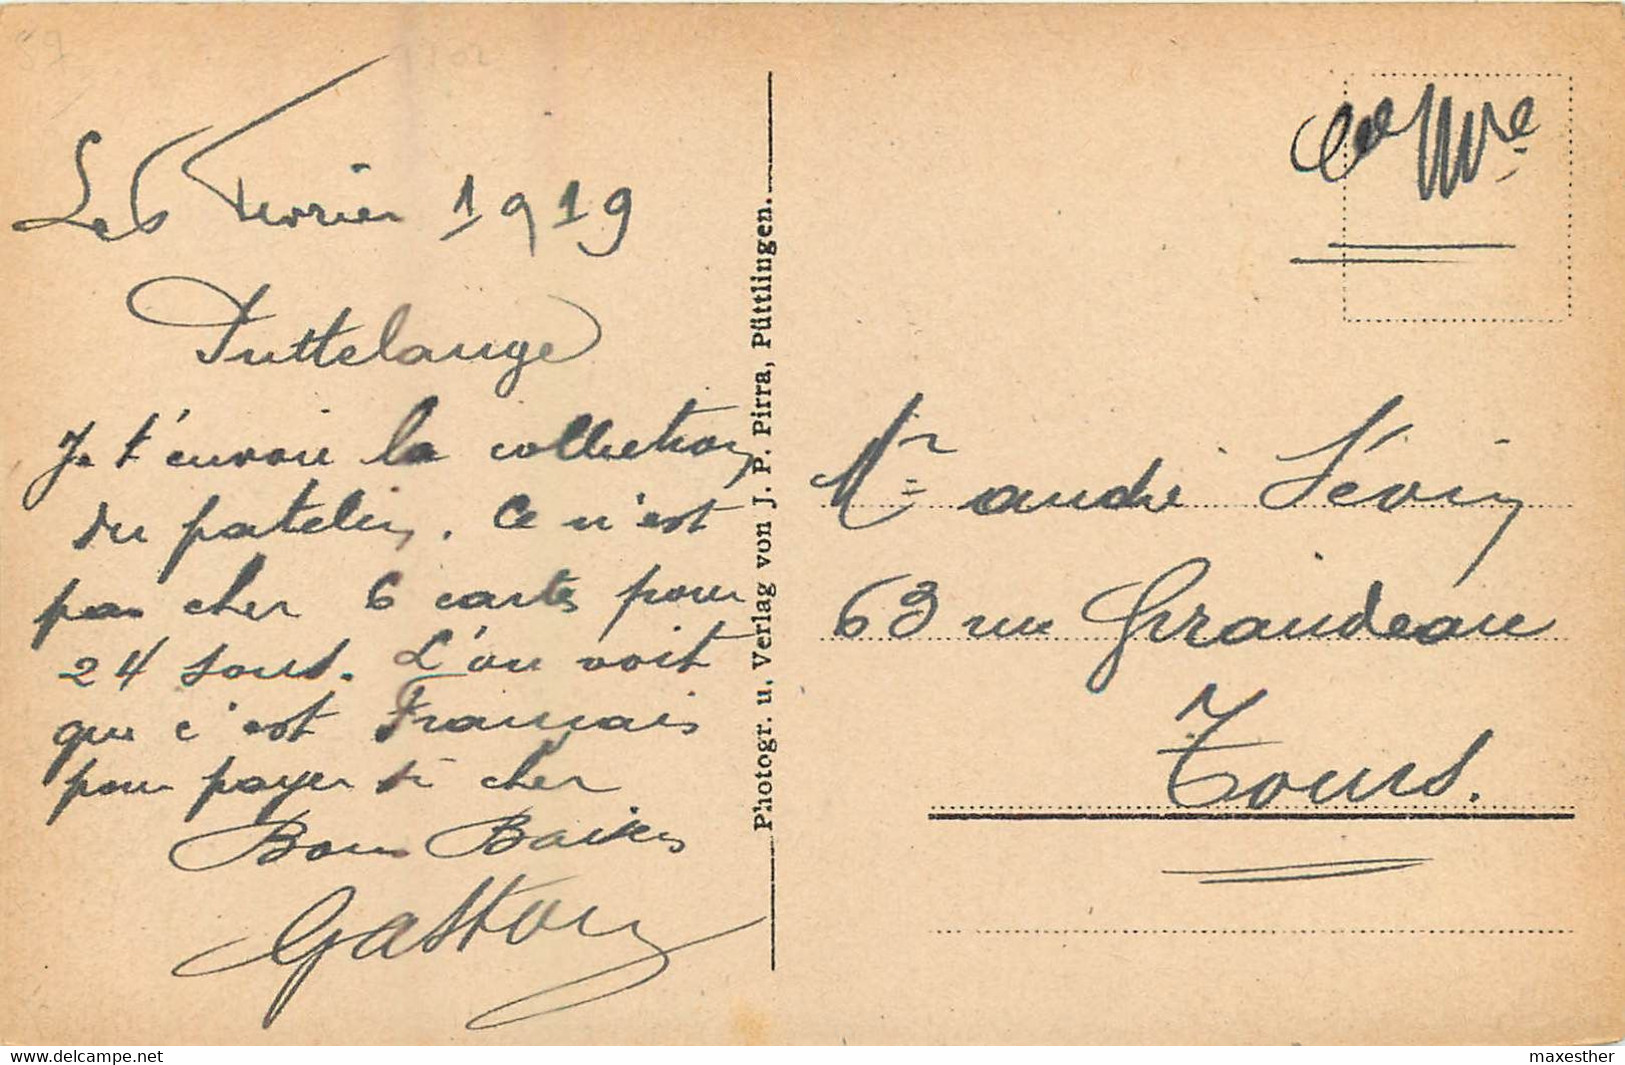 Le 5 Fevrier 1919
Puttelange
Je t'envoie la collection
du patelin. Ce n'est
pas cher 6 cartes pour
24 sous. L'on voit
que c'est Francais
pour payer si cher
Bons Baisers
Gaston
Photogr. u. Verlag von J. P. Pirra, Püttlingen.
Mr André Lévin
63 rue Giraudeau
Tours.
maxesther